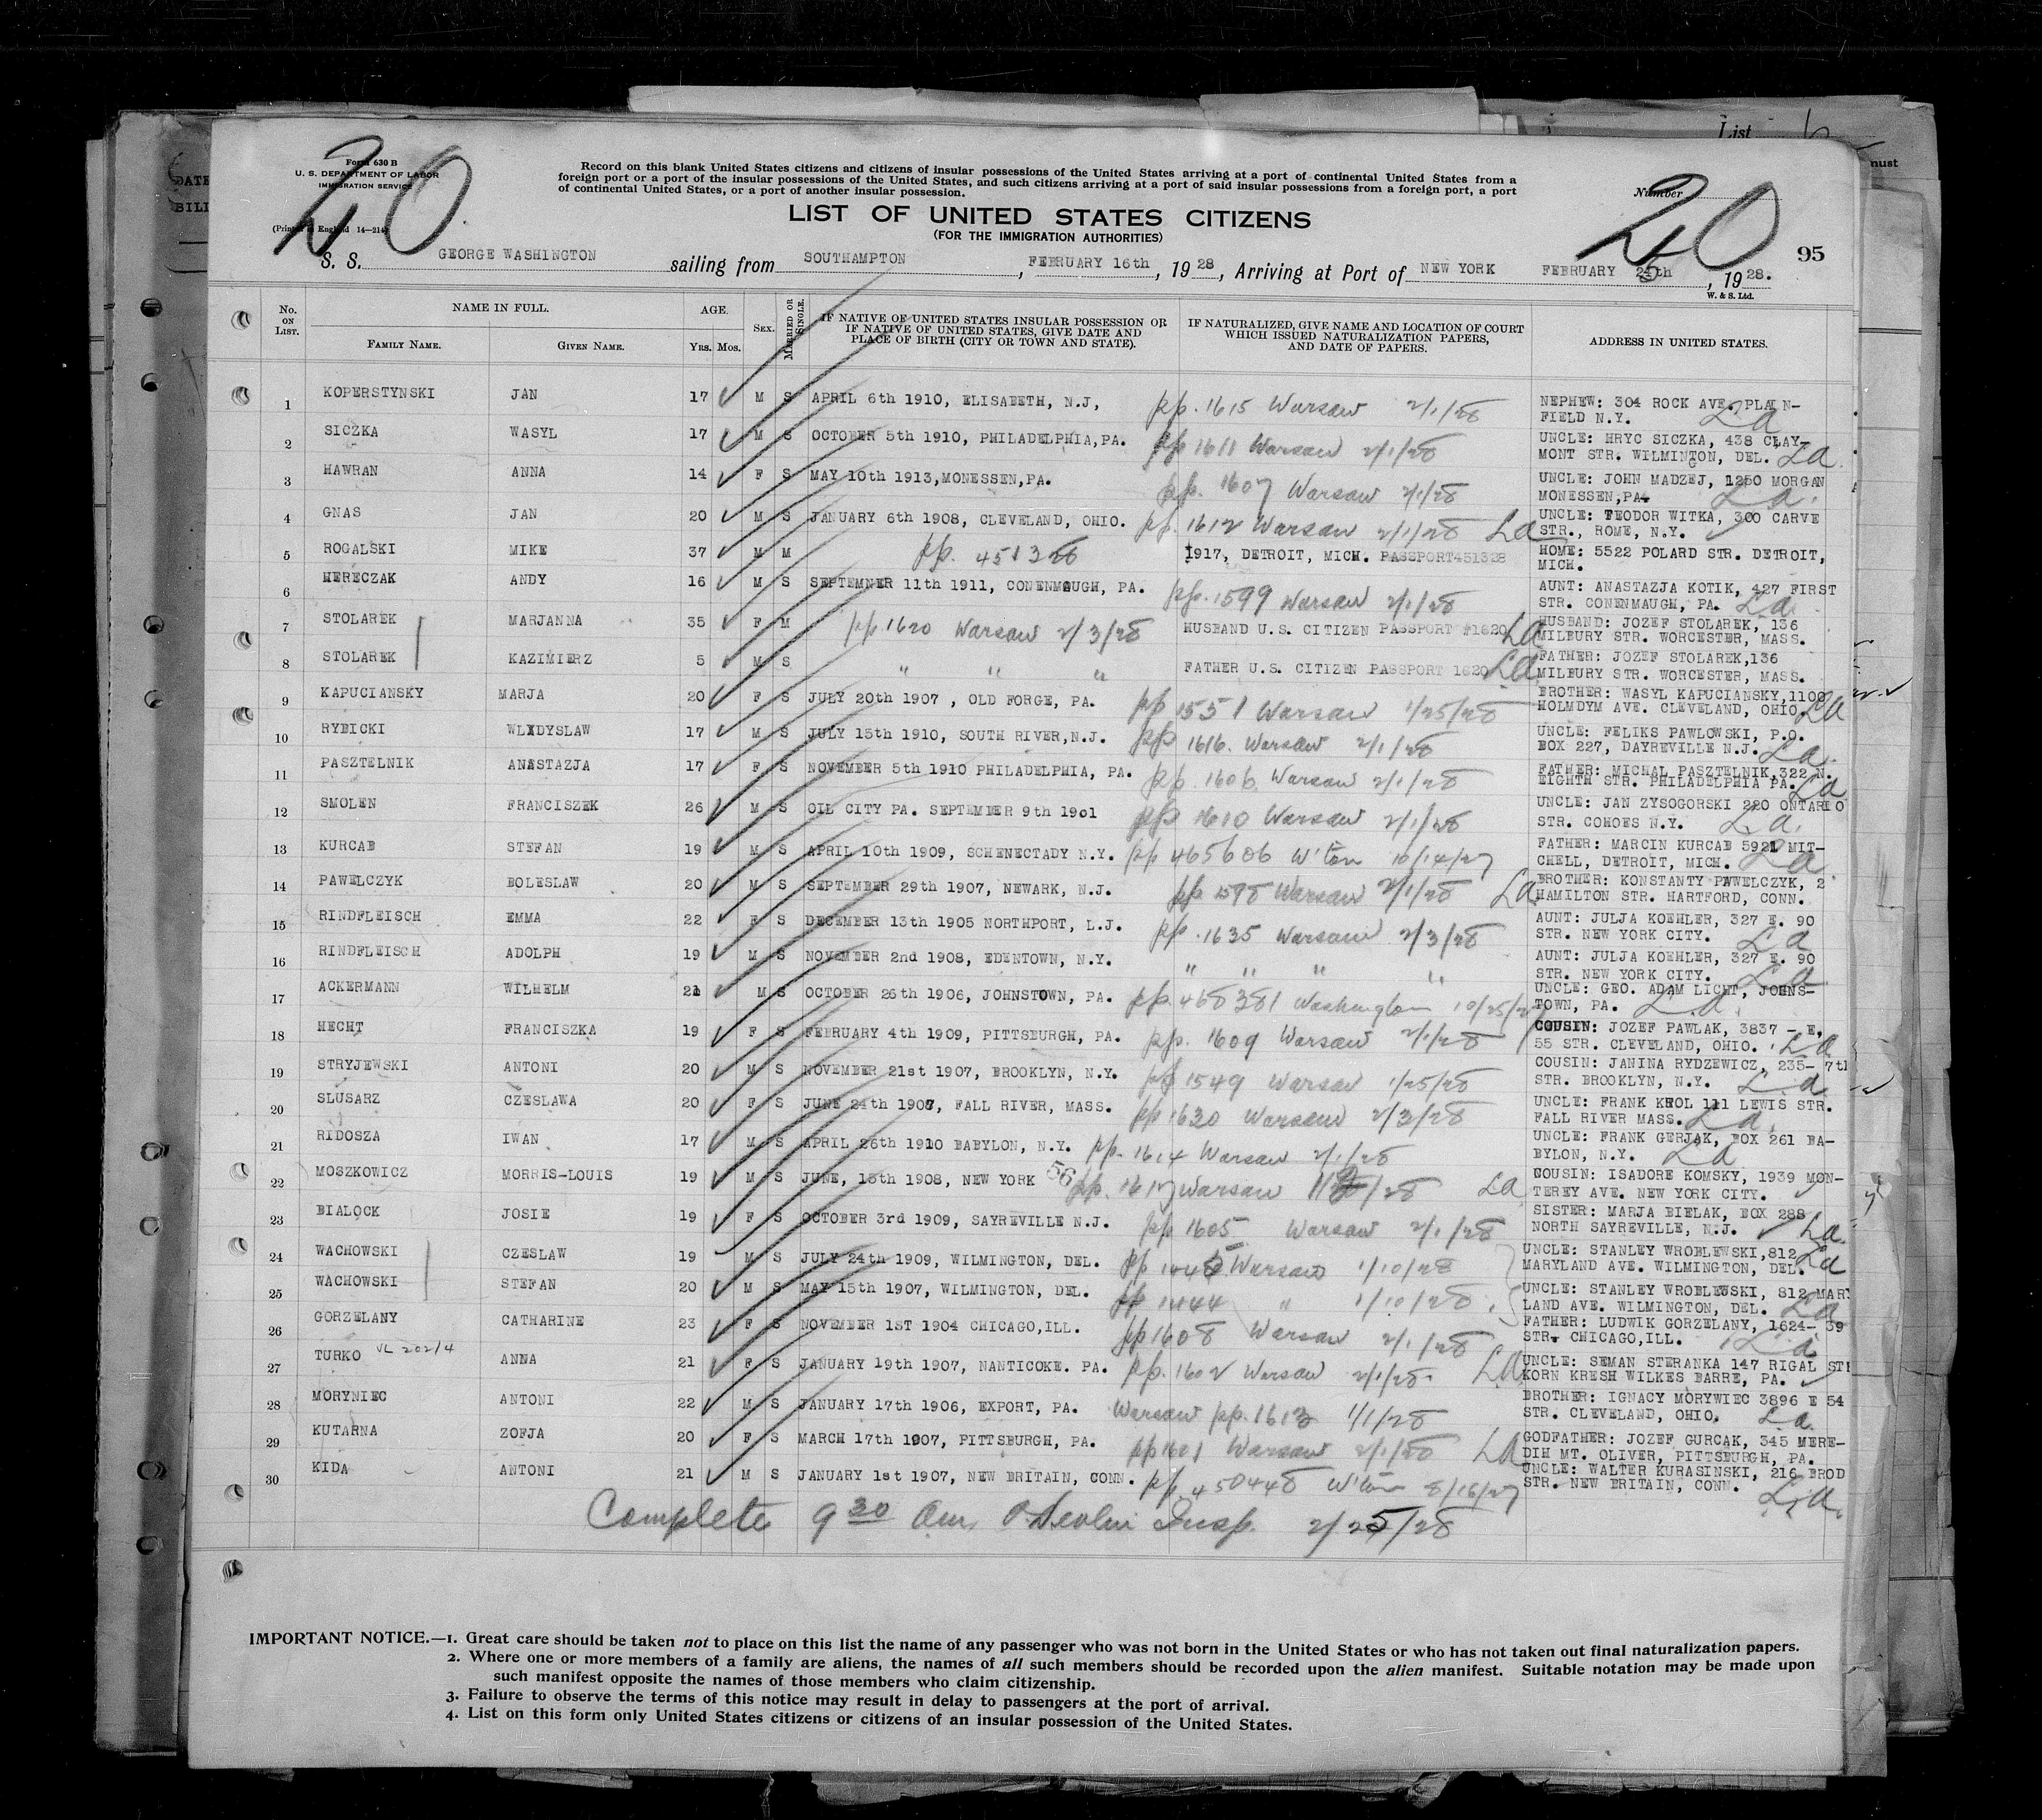 List
must
DATE
BILL
20
Form 630 B
U. S. DEPARTMENT OF LABOR
IMMIGRATION SERVICE
(Printed in England 14—214)
Record on this blank United States citizens and citizens of insular possessions of the United States arriving at a port of continental United States from a
foreign port or a port of the insular possessions of the United States, and such citizens arriving at a port of said insular possessions from a foreign port, a port
of continental United States, or a port of another insular possession.
Number
20
LIST OF UNITED STATES CITIZENS
(FOR THE IMMIGRATION AUTHORITIES)
95
S. S. GEORGE WASHINGTON sailing from SOUTHAMPTON, FEBRUARY 16th, 1928, Arriving at Port of NEW YORK FEBRUARY 25th, 1928.
W. & S. Ltd.
No. ON LIST. NAME IN FULL. FAMILY NAME. GIVEN NAME. AGE. Yrs. Mos. SEX. MARRIED OR SINGLE.
IF NATIVE OF UNITED STATES INSULAR POSSESSION OR
IF NATIVE OF UNITED STATES, GIVE DATE AND
PLACE OF BIRTH (CITY OR TOWN AND STATE).
IF NATURALIZED, GIVE NAME AND LOCATION OF COURT
WHICH ISSUED NATURALIZATION PAPERS,
AND DATE OF PAPERS.
ADDRESS IN UNITED STATES.
1 KOPERSTYNSKI JAN 17 M S APRIL 6th 1910, ELISABETH, N.J, pp. 1615 Warsaw 2/1/28 NEPHEW: 304 ROCK AVE. PLAIN-
FIELD N.Y. La
2 SICZKA WASYL 17 M S OCTOBER 5th 1910, PHILADELPHIA,PA. pp 1611 Warsaw 2/1/28 UNCLE: HRYC SICZKA, 438 CLAY-
MONT STR. WILMINGTON, DEL. La
3 HAWRAN ANNA 14 F S MAY 10th 1913,MONESSEN,PA. pp. 1607 Warsaw 2/1/28 UNCLE: JOHN MADZEJ, 1250 MORGAN
MONESSEN,PA. La.
4 GNAS JAN 20 M S JANUARY 6th 1908, CLEVELAND, OHIO. pp. 1612 Warsaw 2/1/28 La UNCLE: TEODOR WITKA, 300 CARVE
STR., ROME, N.Y.
5 ROGALSKI MIKE 37 M M pp. 451328 1917, DETROIT, MICH. PASSPORT451328 HOME: 5522 POLARD STR. DETROIT,
MICH.
6 HERECZAK ANDY 16 M S SEPTEMNER 11th 1911, CONENMAUGH, PA. pp. 1599 Warsaw 2/1/28 AUNT: ANASTAZJA KOTIK, 427 FIRST
STR. CONENMAUGH, PA. La.
7 STOLAREK MARJANNA 35 F M pp 1620 Warsaw 2/3/28 HUSBAND U.S. CITIZEN PASSPORT #1620 La HUSBAND: JOZEF STOLAREK, 136
MILBURY STR. WORCESTER, MASS.
8 STOLAREK KAZIMIERZ 5 M S " " " FATHER U.S. CITIZEN PASSPORT 1620 La FATHER: JOZEF STOLAREK,136
MILBURY STR. WORCESTER, MASS.
9 KAPUCIANSKY MARJA 20 F S JULY 20th 1907 , OLD FORGE, PA. pp 1551 Warsaw 1/25/28 BROTHER: WASYL KAPUCIANSKY,1100
HOLMDYM AVE. CLEVELAND, OHIO La
10 RYBICKI WLADYSLAW 17 M S JULY 15th 1910, SOUTH RIVER,N.J. pp 1616. Warsaw 2/1/28 UNCLE: FELIKS PAWLOWSKI, P.O.
BOX 227, DAYREVILLE N.J. La.
11 PASZTELNIK ANASTAZJA 17 F S NOVEMBER 5th 1910 PHILADELPHIA, PA. pp. 1606. Warsaw 2/1/28 FATHER: MICHAL PASZTELNIK,322 N.
EIGHTH STR. PHILADELPHIA PA. La
12 SMOLEN FRANCISZEK 26 M S OIL CITY PA. SEPTEMBER 9th 1901 pp 1610 Warsaw 2/1/28 UNCLE: JAN ZYSOGORSKI 220 ONTARIO
STR. COHOES N.Y. La.
13 KURCAB STEFAN 19 M S APRIL 10th 1909, SCHENECTADY N.Y. pp 465606 W'ton 10/14/27 FATHER: MARCIN KURCAB 5921 MIT-
CHELL, DETROIT, MICH. La
14 PAWELCZYK BOLESLAW 20 M S SEPTEMBER 29th 1907, NEWARK, N.J. pp 1598 Warsaw 2/1/28 La BROTHER: KONSTANTY PAWELCZYK, 2
HAMILTON STR. HARTFORD, CONN.
15 RINDFLEISCH EMMA 22 F S DECEMBER 13th 1905 NORTHPORT, L.J. pp. 1635 Warsaw 2/3/28 AUNT: JULJA KOEHLER, 327 E. 90
STR. NEW YORK CITY. La
16 RINDFLEISCH ADOLPH 19 M S NOVEMBER 2nd 1908, EDENTOWN, N.Y. " " " " AUNT: JULJA KOEHLER, 327 E. 90
STR. NEW YORK CITY. La
17 ACKERMANN WILHELM 21 M S OCTOBER 26th 1906, JOHNSTOWN, PA. pp. 468381 Washington 10/25/27 UNCLE: GEO. ADAM LICHT, JOHNS-
TOWN, PA. La.
18 HECHT FRANCISZKA 19 F S FEBRUARY 4th 1909, PITTSBURGH, PA. pp. 1609 Warsaw 2/1/28 COUSIN: JOZEF PAWLAK, 3837 - E.
55 STR. CLEVELAND, OHIO. La
19 STRYJEWSKI ANTONI 20 M S NOVEMBER 21st 1907, BROOKLYN, N.Y. pp 1549 Warsaw 1/25/28 COUSIN: JANINA RYDZEWICZ, 235- 7th
STR. BROOKLYN, N.Y. La
20 SLUSARZ CZESLAWA 20 F S JUNE 24th 1907, FALL RIVER, MASS. pp 1630 Warsaw 2/3/28 UNCLE: FRANK KROL 111 LEWIS STR.
FALL RIVER MASS. La.
21 RIDOSZA IWAN 17 M S APRIL 26th 1910 BABYLON, N.Y. pp. 1614 Warsaw 2/1/28 UNCLE: FRANK GERJAK, BOX 261 BA-
BYLON, N.Y. La
22 MOSZKOWICZ MORRIS-LOUIS 19 M S JUNE, 15th 1908, NEW YORK 56 pp. 1617 Warsaw /28 La COUSIN: ISADORE KOMSKY, 1939 MON-
TEREY AVE. NEW YORK CITY.
23 BIALOCK JOSIE 19 F S OCTOBER 3rd 1909, SAYREVILLE N.J. pp 1605 Warsaw 2/1/28 SISTER: MARJA BIELAK, BOX 288
NORTH SAYREVILLE, N.J. La.
24 WACHOWSKI CZESLAW 19 M S JULY 24th 1909, WILMINGTON, DEL. pp 1445 Warsaw 1/10/28 UNCLE: STANLEY WROBLEWSKI,812
MARYLAND AVE. WILMINGTON, DEL. La
25 WACHOWSKI STEFAN 20 M S MAY 15th 1907, WILMINGTON, DEL. pp 1444 " 1/10/28 UNCLE: STANLEY WROBLEWSKI, 812 MARY
LAND AVE. WILMINGTON, DEL. La
26 GORZELANY CATHARINE 23 F S NOVEMBER 1ST 1904 CHICAGO,ILL. pp 1608 Warsaw 2/1/28 FATHER: LUDWIK GORZELANY, 1624- 39
STR. CHICAGO,ILL. La
27 TURKO VL 20214 ANNA 21 F S JANUARY 19th 1907, NANTICOKE. PA. pp. 1602 Warsaw 2/1/28 La UNCLE: SEMAN STERANKA 147 RIGAL STR
KORN KRESH WILKES BARRE, PA.
28 MORYNIEC ANTONI 22 M S JANUARY 17th 1906, EXPORT, PA. Warsaw pp. 1613 1/1/28 BROTHER: IGNACY MORYWIEC 3896 E 54
STR. CLEVELAND, OHIO. La
29 KUTARNA ZOFJA 20 F S MARCH 17th 1907, PITTSBURGH, PA. pp 1601 Warsaw 2/1/28 La GODFATHER: JOZEF GURCAK, 345 MERE-
DIH MT. OLIVER, PITTSBURGH, PA.
30 KIDA ANTONI 21 M S JANUARY 1st 1907, NEW BRITAIN, CONN. pp. 450448 W'ton 8/16/27 UNCLE: WALTER KURASINSKI, 216 BROD
STR. NEW BRITAIN, CONN. La.
Complete 9 30 am, Devlin Insp. 2/25/28
IMPORTANT NOTICE.—1. Great care should be taken not to place on this list the name of any passenger who was not born in the United States or who has not taken out final naturalization papers.
2. Where one or more members of a family are aliens, the names of all such members should be recorded upon the alien manifest. Suitable notation may be made upon
such manifest opposite the names of those members who claim citizenship.
3. Failure to observe the terms of this notice may result in delay to passengers at the port of arrival.
4. List on this form only United States citizens or citizens of an insular possession of the United States.